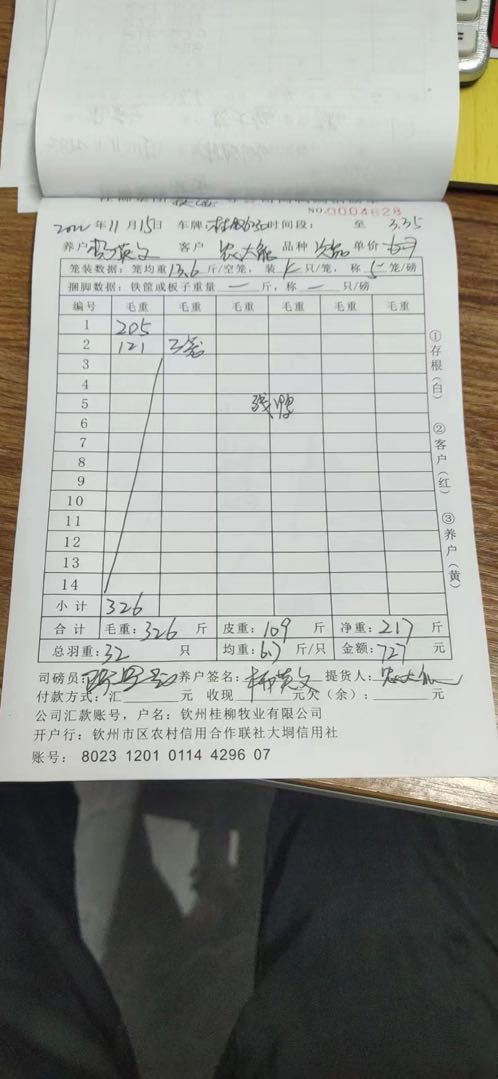 NO.0004628
年11月15日 车牌 时间段: 至 3.35
养户 客户 农大能 品种 单价
笼装数据: 笼均重13.6斤/空笼, 装 只/笼, 称5笼/磅
捆脚数据: 铁筐或板子重量 一 斤, 称 一 只/磅
编号 毛重 毛重 毛重 毛重 毛重 毛重
1 205
2 121 3笼
3
4
5 残鸭
6
7
8
9
10
11
12
13
14
小计 326
合计 毛重:326斤 皮重:109斤 净重:217斤
总羽重:32只 均重: 斤/只 金额:727元
司磅员: 养户签名: 英文 提货人: 农大能
付款方式:汇 元 收现 元欠(余): 元
公司汇款账号, 户名: 钦州桂柳牧业有限公司
开户行: 钦州市区农村信用合作联社大垌信用社
账号: 8023 1201 0114 4296 07
①存根(白)
②客户(红)
③养户(黄)